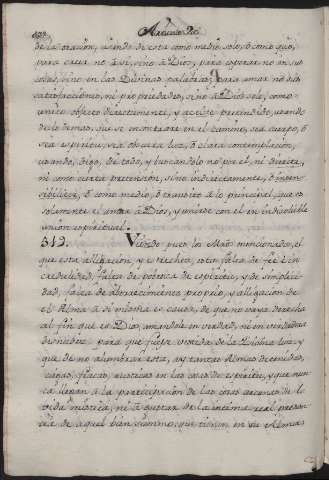 Articulo
de la oracion, usando de esta como medio solo, ò como quo,
para creer no à sí, sino à Dios, para esperar no en sus
cosas, sino en las Divinas palabras; para amar no sus
satisfacciones, ni propriedades, sino à Dios solo, como
unico objeto directamente, y acceso pretendido, usando
de lo demas, que se encontrare en el camino, sea cuerpo, ò
sea espiritu, sea obscura luz, ò clara contemplacion,
usando, digo, de todo, y buscandolo no por el, ni directa,
ni como cierta pretension, sino indirectamente, ò insen-
sibiliter, ò como medio, ò transito à lo principal, que es
solamente el amar à Dios, y unirse con el en indisoluble
union espiritual.
512. Viendo pues los Maos mencionados, el
que esta alligacion, y estrechez, esta falta de fee è in
credulidad, falta de pobreza de espiritu, y de simplici-
dad, falta de aborrecimiento proprio, y alligacion de
el Alma à si misma es causa, de que no vaya derecha
al fin, que es Dios, amandole en verdad, ni en verdadera
desnudez para que fuesse vestida de la Divina luz, y
que de no alumbrar esta, ay tantas Almas detenidas,
ciegas, flacas, rusticas en las cosas de espiritu, y que nunca
llegan à la participacion de las cosas arcanas de la
vida mistica, ni à gustar de la intima real presen-
cia de aquel bien summo, que tienen en sus Almas